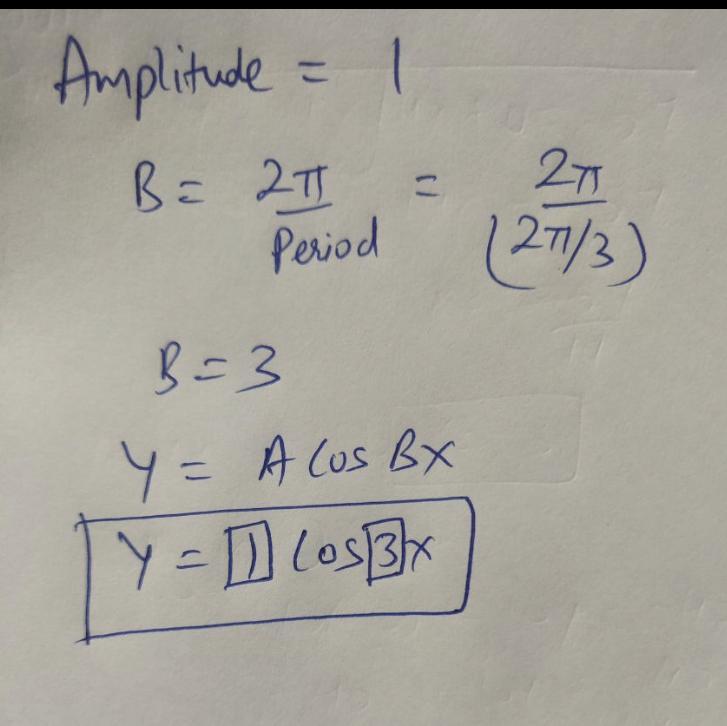 Amplitude = 1
B = 2π/Period = 2π/(2π/3)
B = 3
Y = A Cos BX
Y = 1 Cos 3X